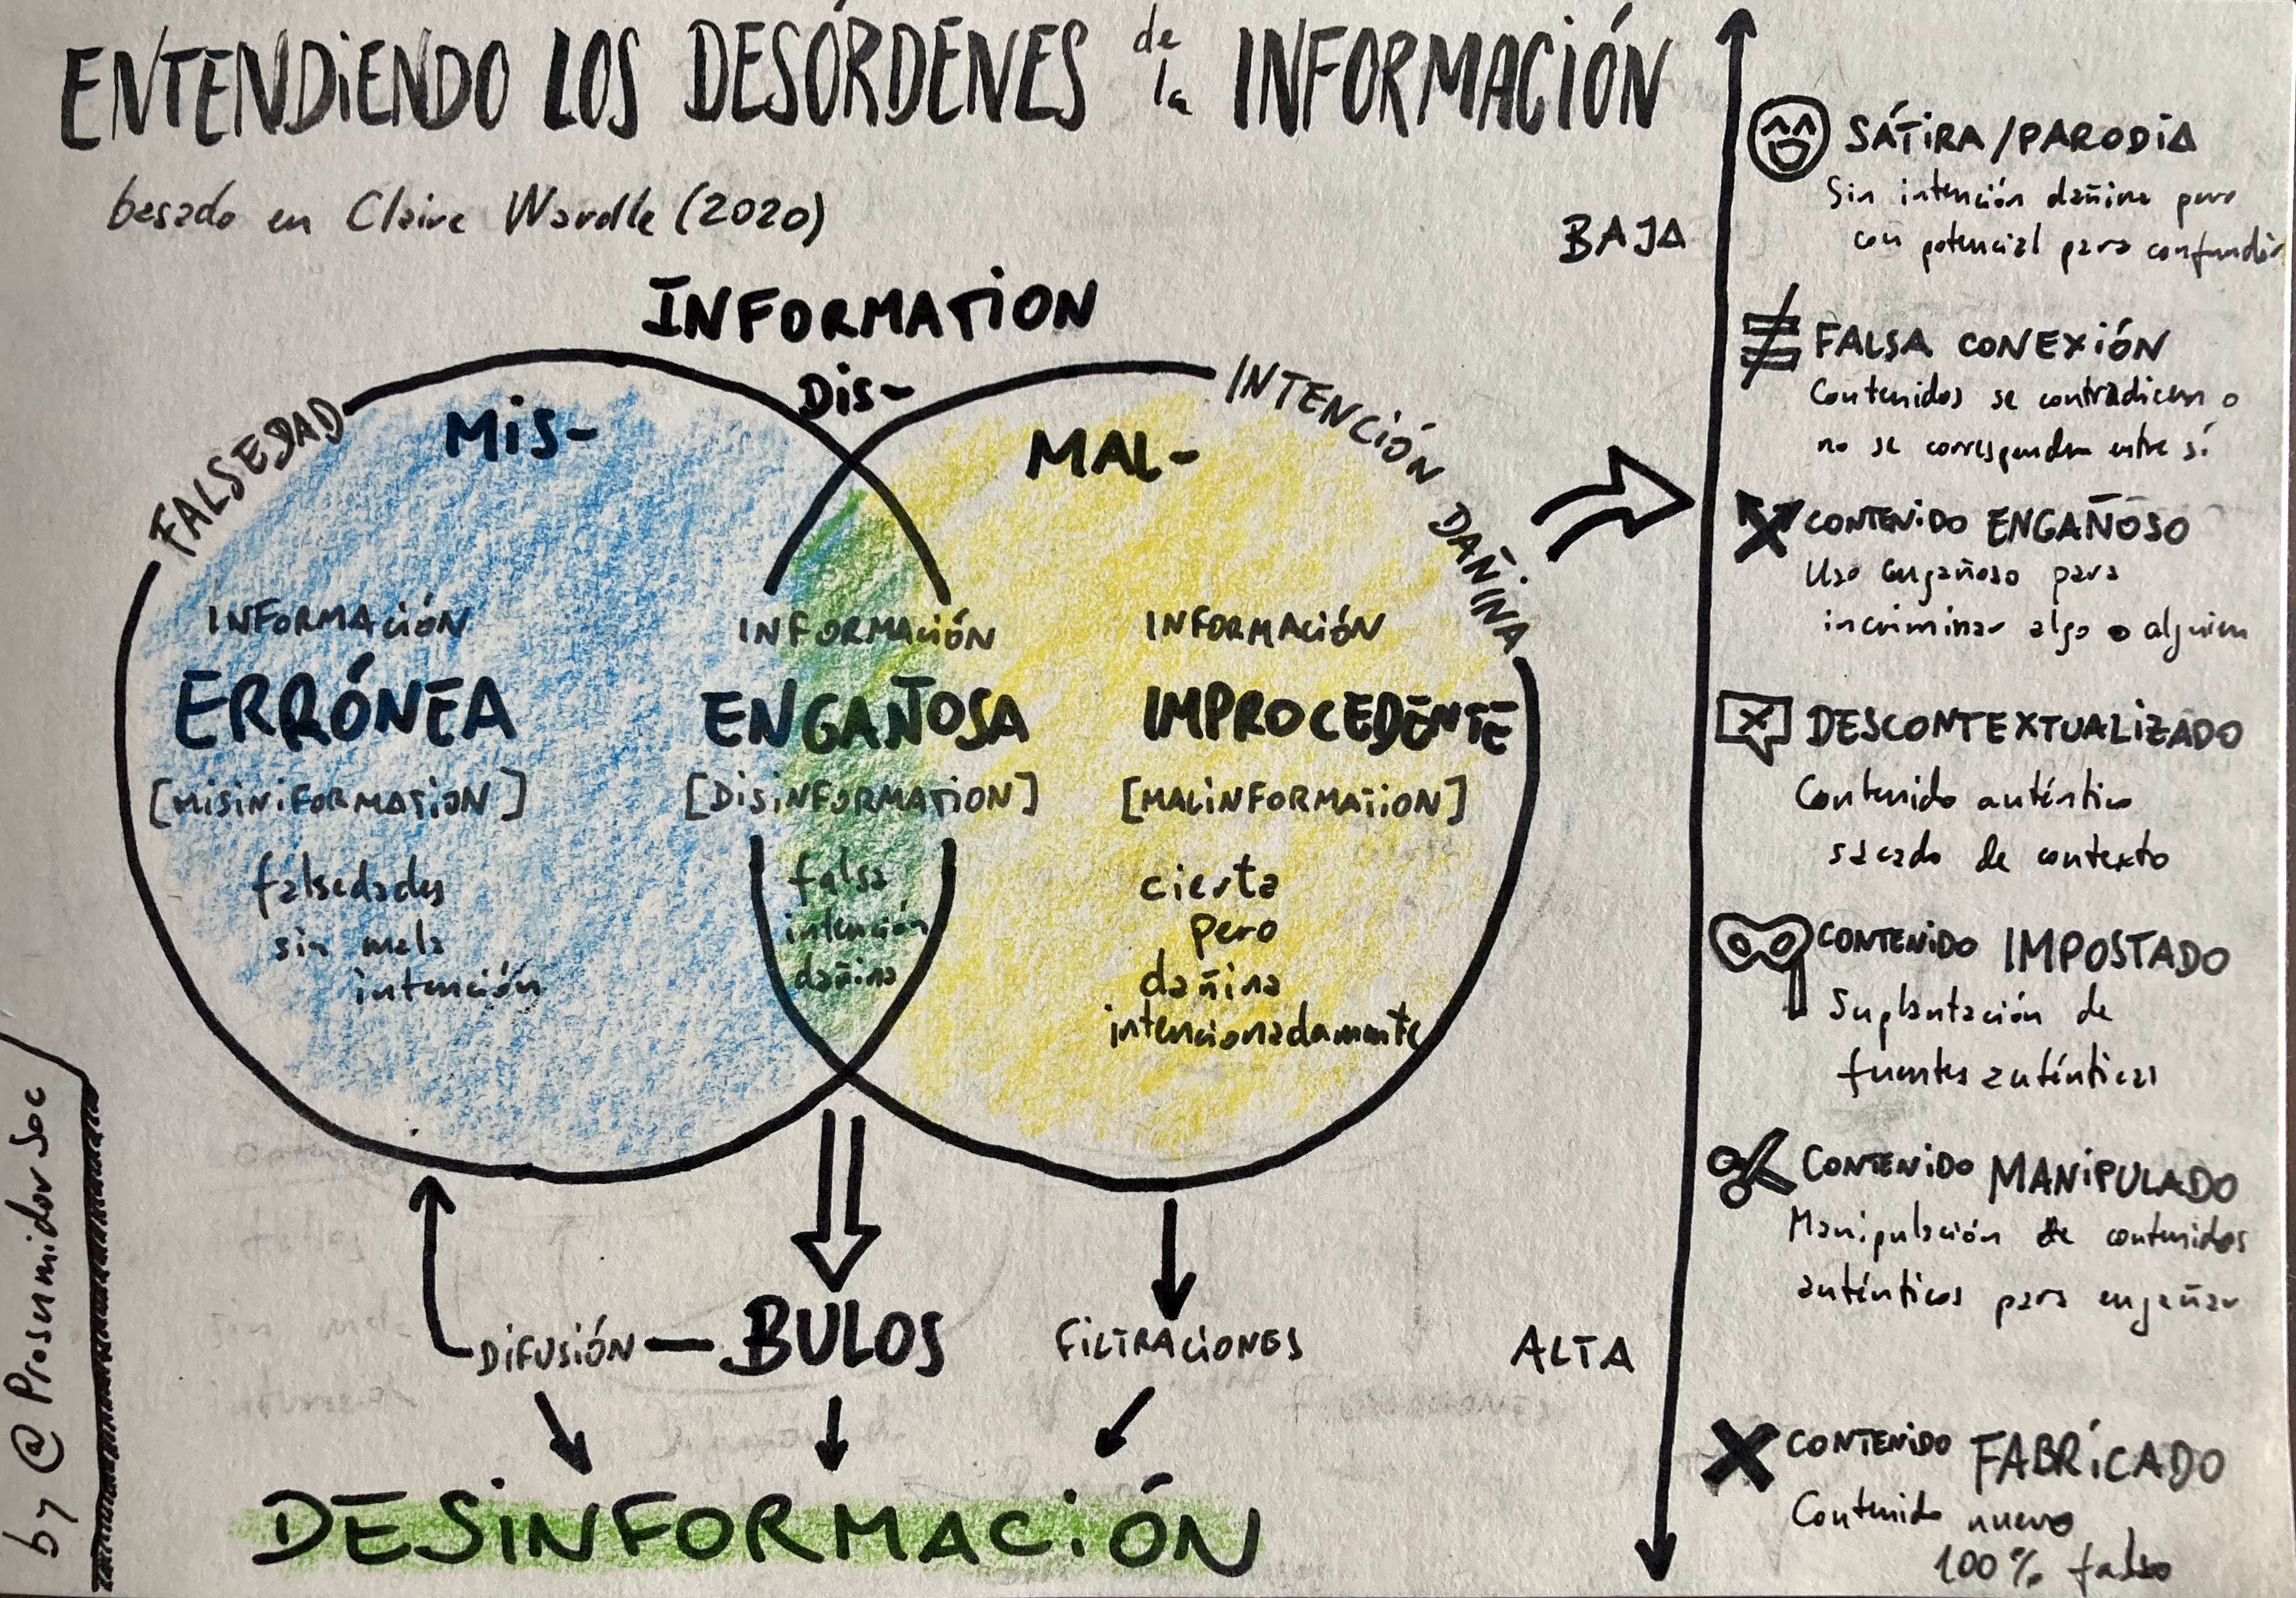 ENTENDIENDO LOS DESÓRDENES de la INFORMACIÓN
basado en Claire Wardle (2020)
INFORMATION
FALSEDAD
MIS-
DIS-
MAL-
INTENCIÓN DAÑINA
INFORMACIÓN
ERRÓNEA
[MISINIFORMATION]
falsedades
sin mala
intención
INFORMACIÓN
ENGAÑOSA
[DISINFORMATION]
falsa
intención
dañina
INFORMACIÓN
IMPROCEDENTE
[MALINFORMATIION]
cierta
pero
dañina
intencionadamente
DIFUSIÓN
BULOS
FILTRACIONES
DESINFORMACIÓN
BAJA
ALTA
SÁTIRA/PARODIA
Sin intención dañina pero
con potencial para confundir
FALSA CONEXIÓN
Contenidos se contradicen o
no se corresponden entre sí
CONTENIDO ENGAÑOSO
Uso engañoso para
incriminar algo o alguien
DESCONTEXTUALIZADO
Contenido auténtico
sacado de contexto
CONTENIDO IMPOSTADO
Suplantación de
fuentes auténticas
CONTENIDO MANIPULADO
Manipulación de contenidos
auténticos para engañar
CONTENIDO FABRICADO
Contenido nuevo
100% falso
by @ProsumidorSoc